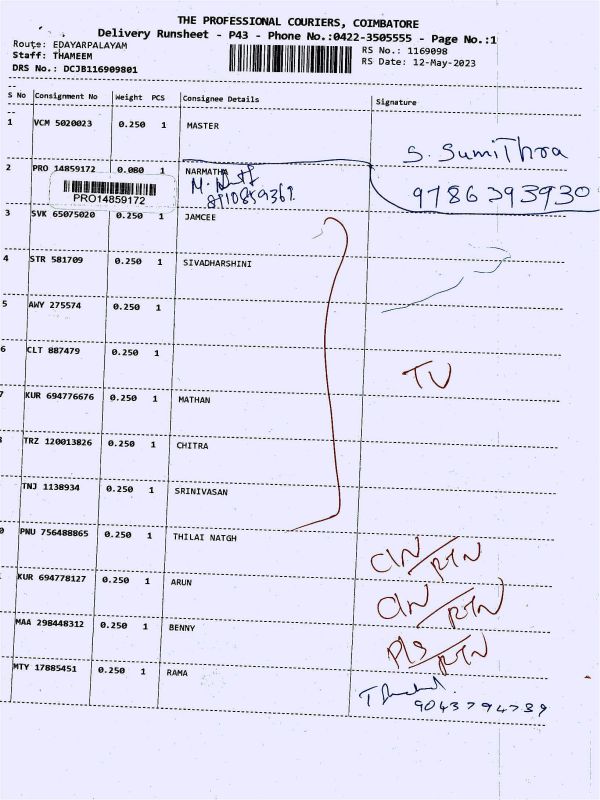 THE PROFESSIONAL COURIERS, COIMBATORE
Delivery Runsheet - P43 - Phone No.:0422-3505555 - Page No.:1
Route: EDAYARPALAYAM
RS No.: 1169098
Staff: THAMEEM
RS Date: 12-May-2023
DRS No.: DCJB116909801
S No Consignment No Weight PCS Consignee Details Signature
1 VCM 5020023 0.250 1 MASTER
S. Sumithra
9786393930
2 PRO 14859172 0.080 1 NARMATHA
PRO14859172
3 SVK 65075020 0.250 1 JAMCEE
4 STR 581709 0.250 1 SIVADHARSHINI
5 AWY 275574 0.250 1
6 CLT 887479 0.250 1
TV
7 KUR 694776676 0.250 1 MATHAN
TRZ 120013826 0.250 1 CHITRA
TNJ 1138934 0.250 1 SRINIVASAN
0 PNU 756488865 0.250 1 THILAI NATGH
CIN/RTN
KUR 694778127 0.250 1 ARUN
CIN/RTN
MAA 298448312 0.250 1 BENNY
P/S/RTN
MTY 17885451 0.250 1 RAMA
9043794739